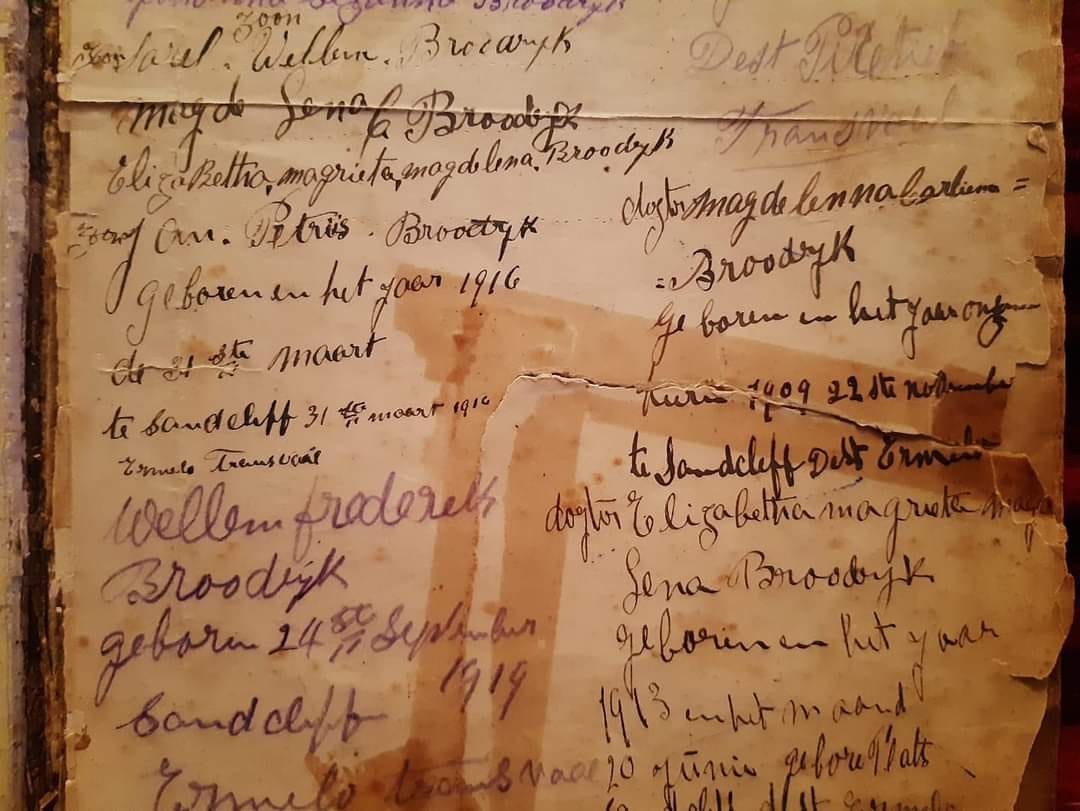 Susanna Broodryk
zoon
zoon Sarel. Wellem. Broodryk
magde Lena C Broodyk
Elizabetha, magrieta, magdelena. Broodyk
zoon Jan. Petris. Broodryk
geboren en het jaar 1916
de 31 ste maart
te Sandcliff 31 ste maart 1916
Ermelo Transvaal
Wellem frederik
Broodyk
geboren 24 ste September
1919
Sandcliff
Ermelo transvaal
Dest
Transvaal
dogtor magdelenna Carliena =
= Broodryk
Geboren en het jaar onzen
heere 1909 22 ste november
te Sandcleff Dest Ermelo
dogtor Elizabetha magrieta magde
Lena Broodyk
geboren en het yaar
1913 en het maand
20 yunie gebore Plats
dest Ermelo